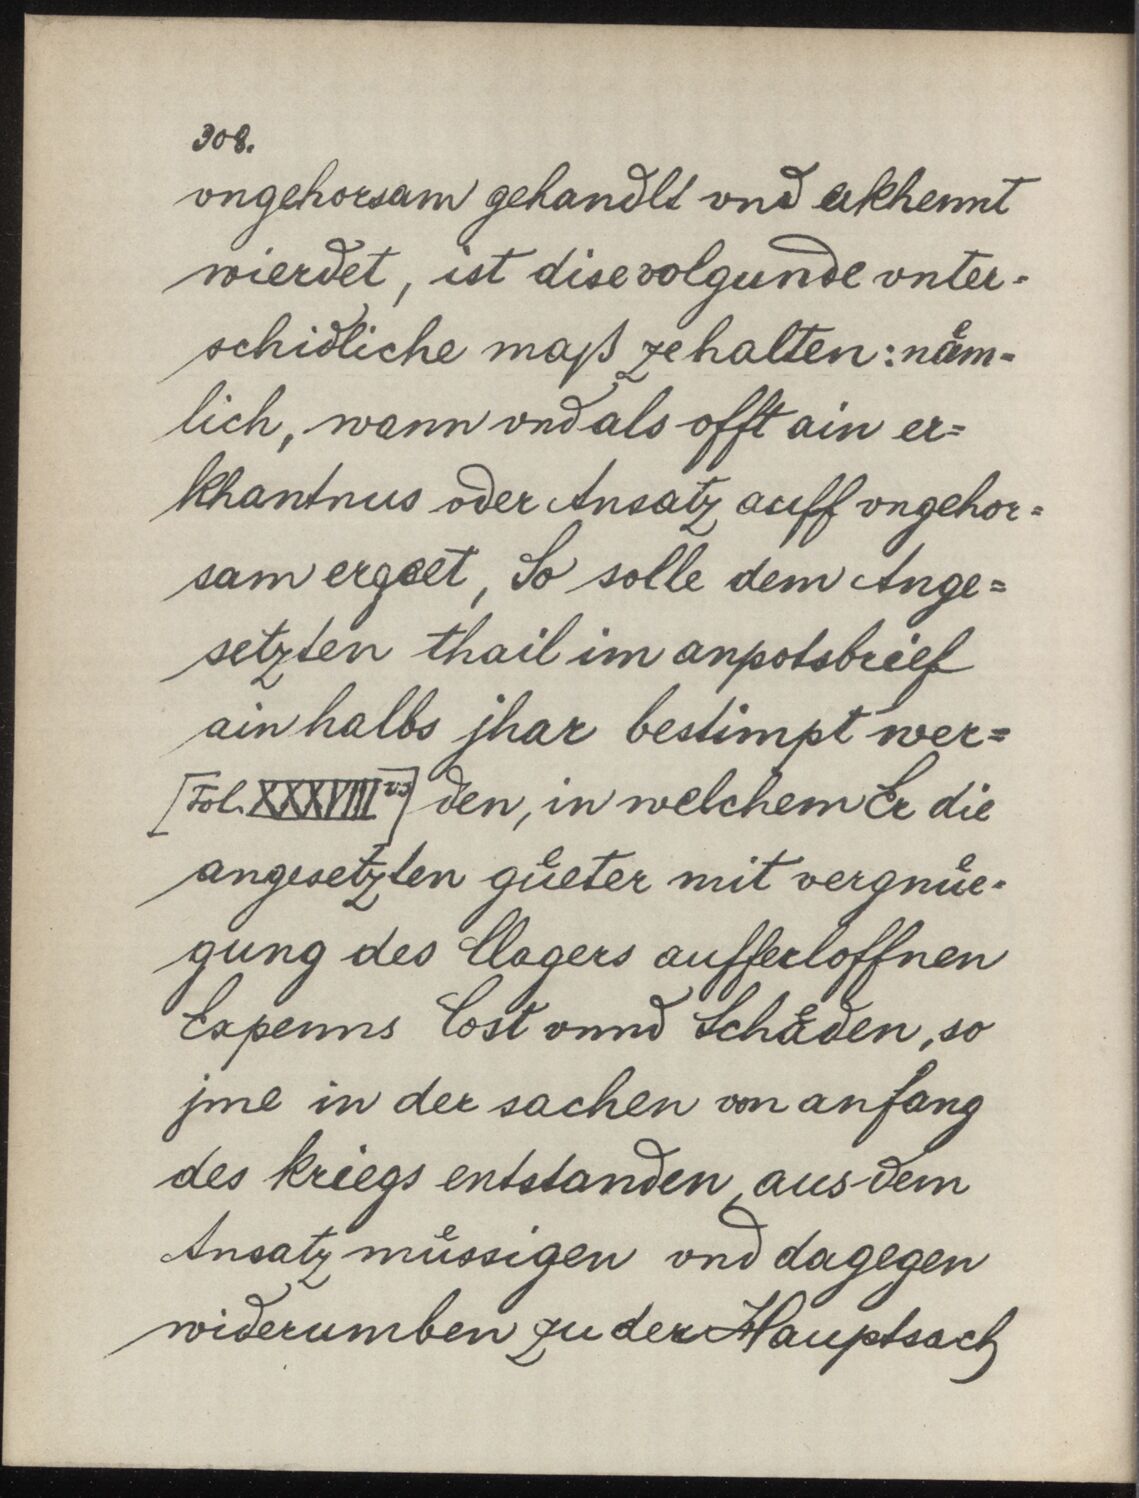 308.
vngehorsam gehandlt vnd erkhennt
wierdet, ist dise volgunde vnter-
schidliche maß ze halten: nåm=
lich, wann vnd als offt ain er=
khantnus oder Ansatz auff vngehor=
sam ergeet, So solle dem Ange=
setzten thail im anpotsbrief
ain halbs jhar bestimpt wer=
[Fol. XXXVIII vs] den, in welchem Er die
angesetzten gůeter mit vergnůe-
gung des Clagers aufferloffnen
Expenns Cost vnnd Schåden, so
jme in der sachen von anfang
des kriegs entstanden, aus dem
Ansatz můssigen vnd dagegen
widerumben zu der Hauptsach